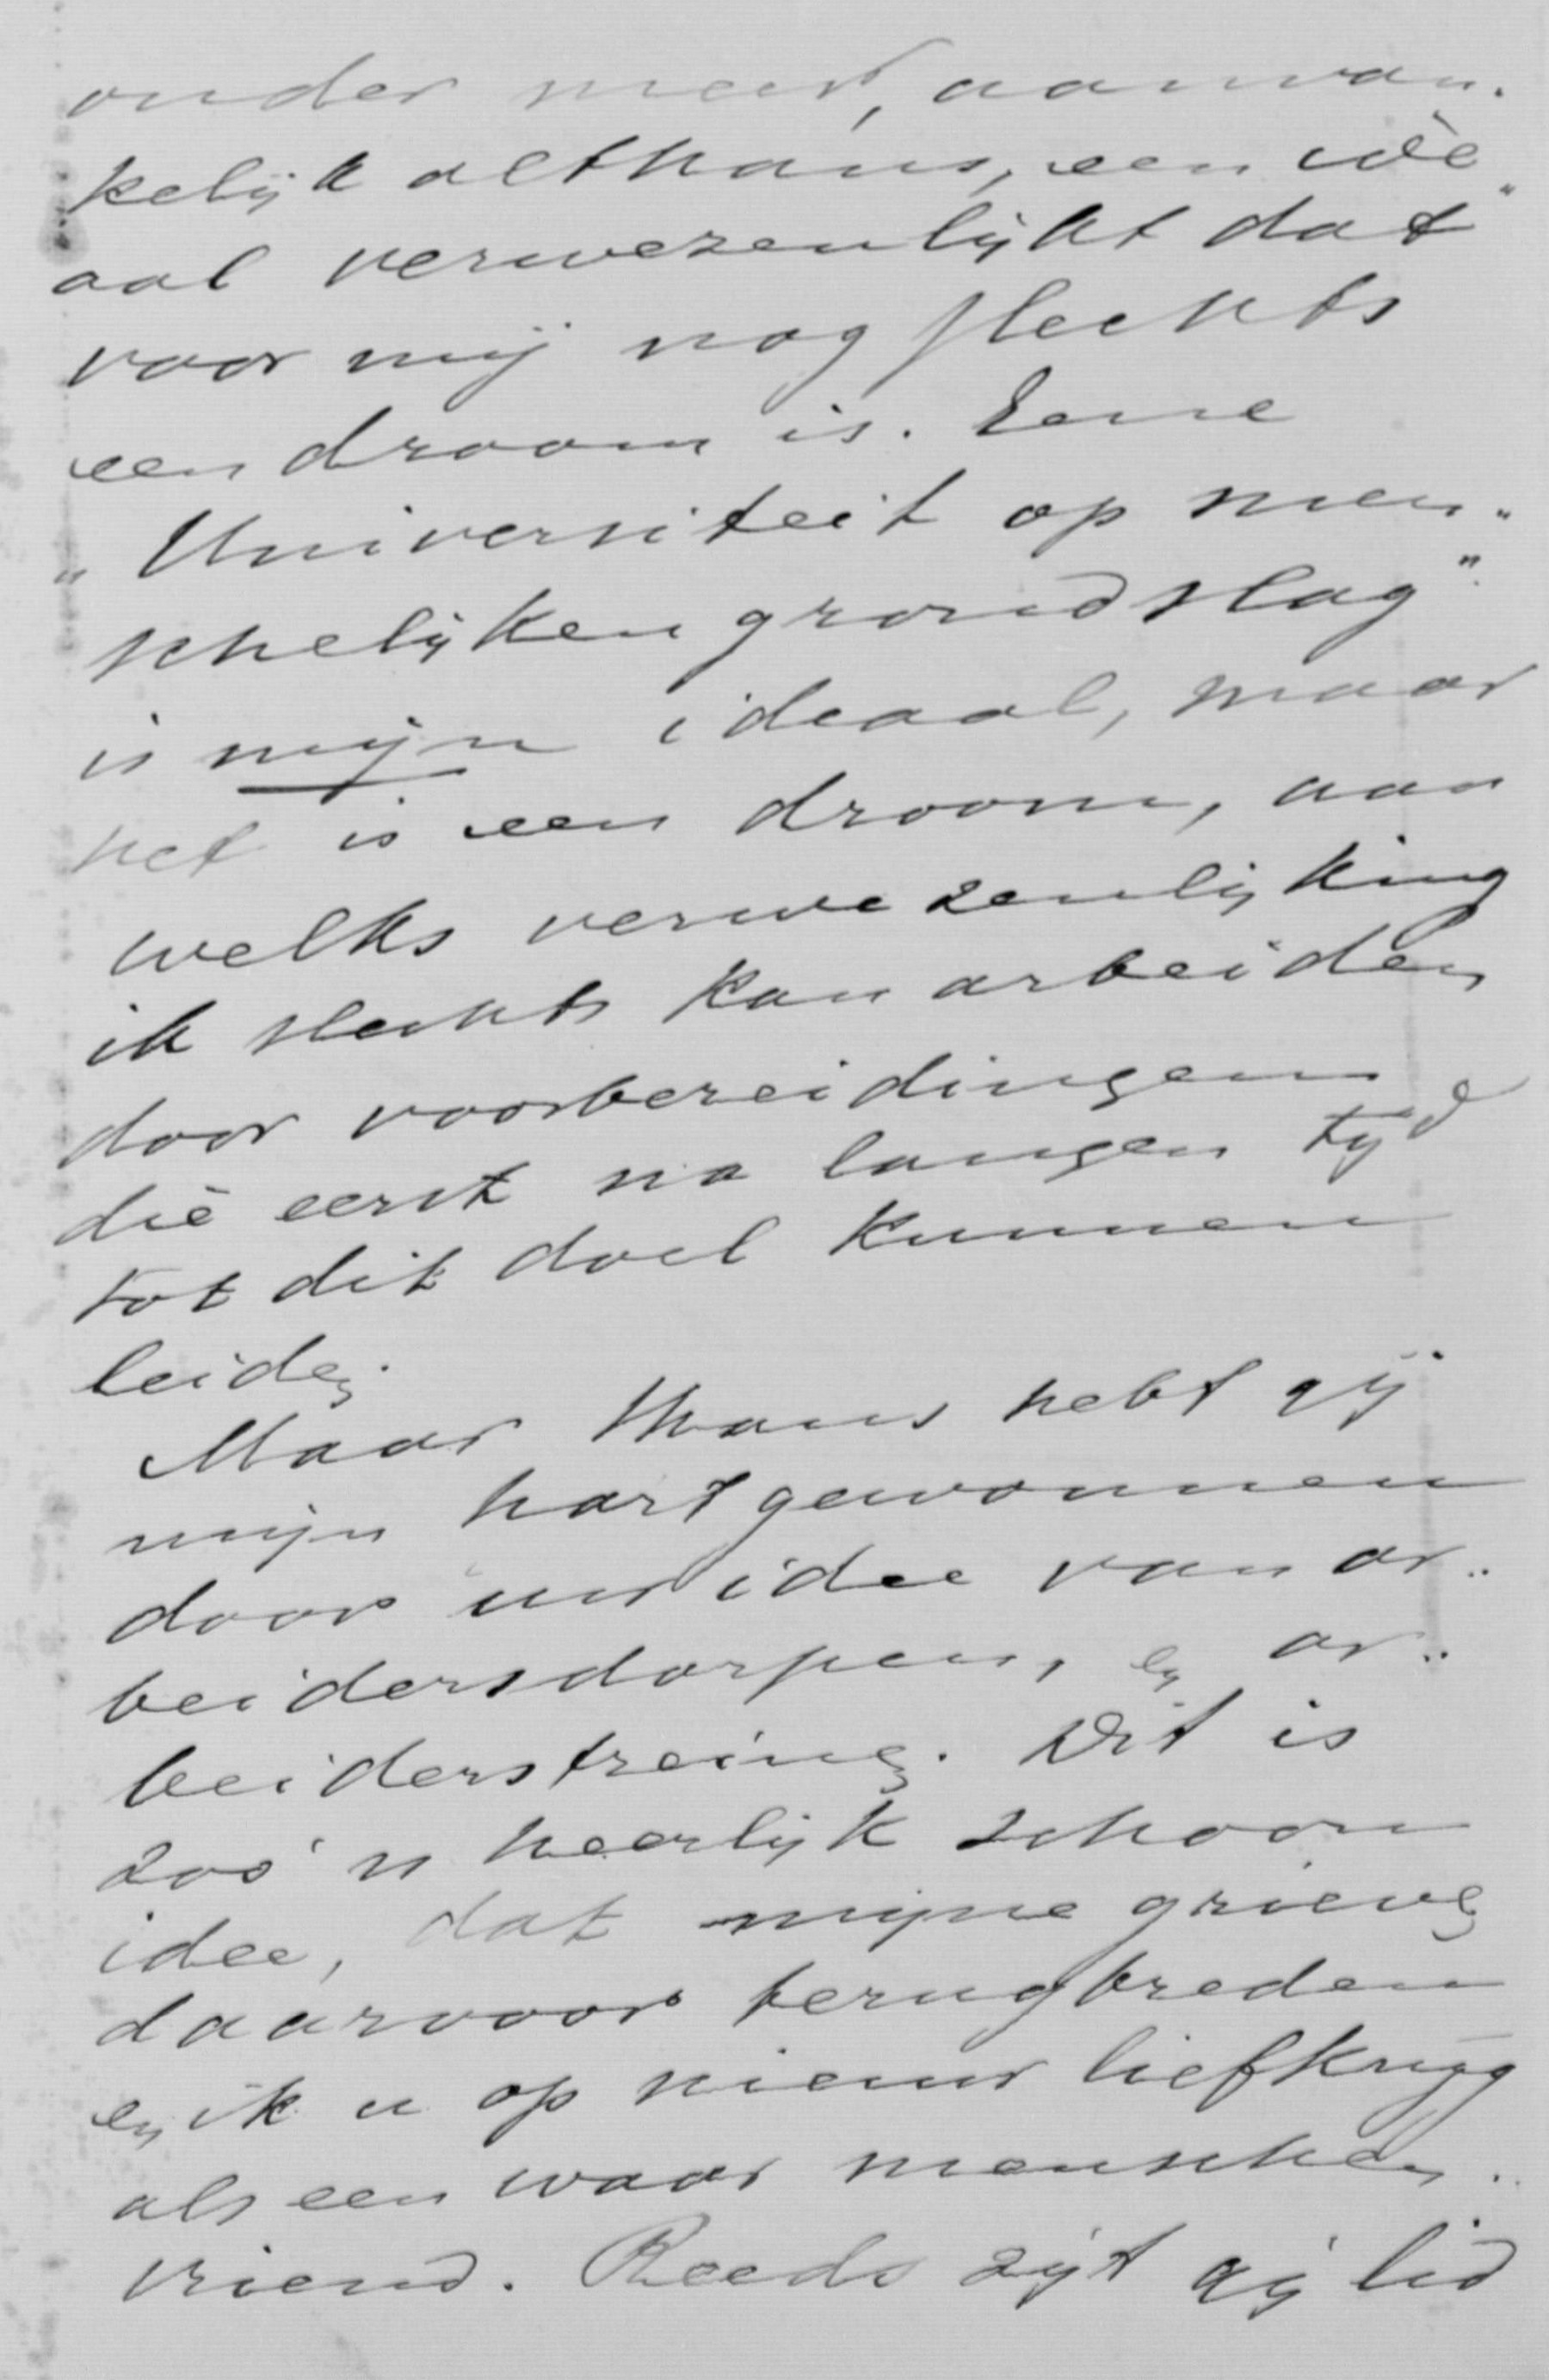 onder meer, aanvan-
kelijk althans, een idé-
aal verwezenlijkt dat
voor mij nog slechts
een droom is. Eene
„Universiteit op men-
schelijken grondslag"
is mijn ideaal, maar
het is een droom, aan
welks verwezenlijking
ik slechts kan arbeiden
door voorbereidingen
die eerst na langen tijd
tot dit doel kunnen
leiden.
Maar thans hebt gij
mijn hart gewonnen
door uw idee van ar-
beidersdorpen, en ar-
beiderstreinen. Dit is
zoo'n heerlijk schoon
idee, dat mijne grieven
daarvoor terugtreden
en ik u op nieuw liefkrijg
als een waar menschen-
vriend. Reeds zijt gij lid